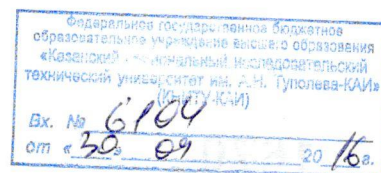 Федеральное государственное бюджетное
образовательное учреждение высшего образования
«Казанский национальный исследовательский
технический университет им. А.Н. Туполева-КАИ»
(КНИТУ-КАИ)
Вх. № 6104
от «30» 09 2016г.